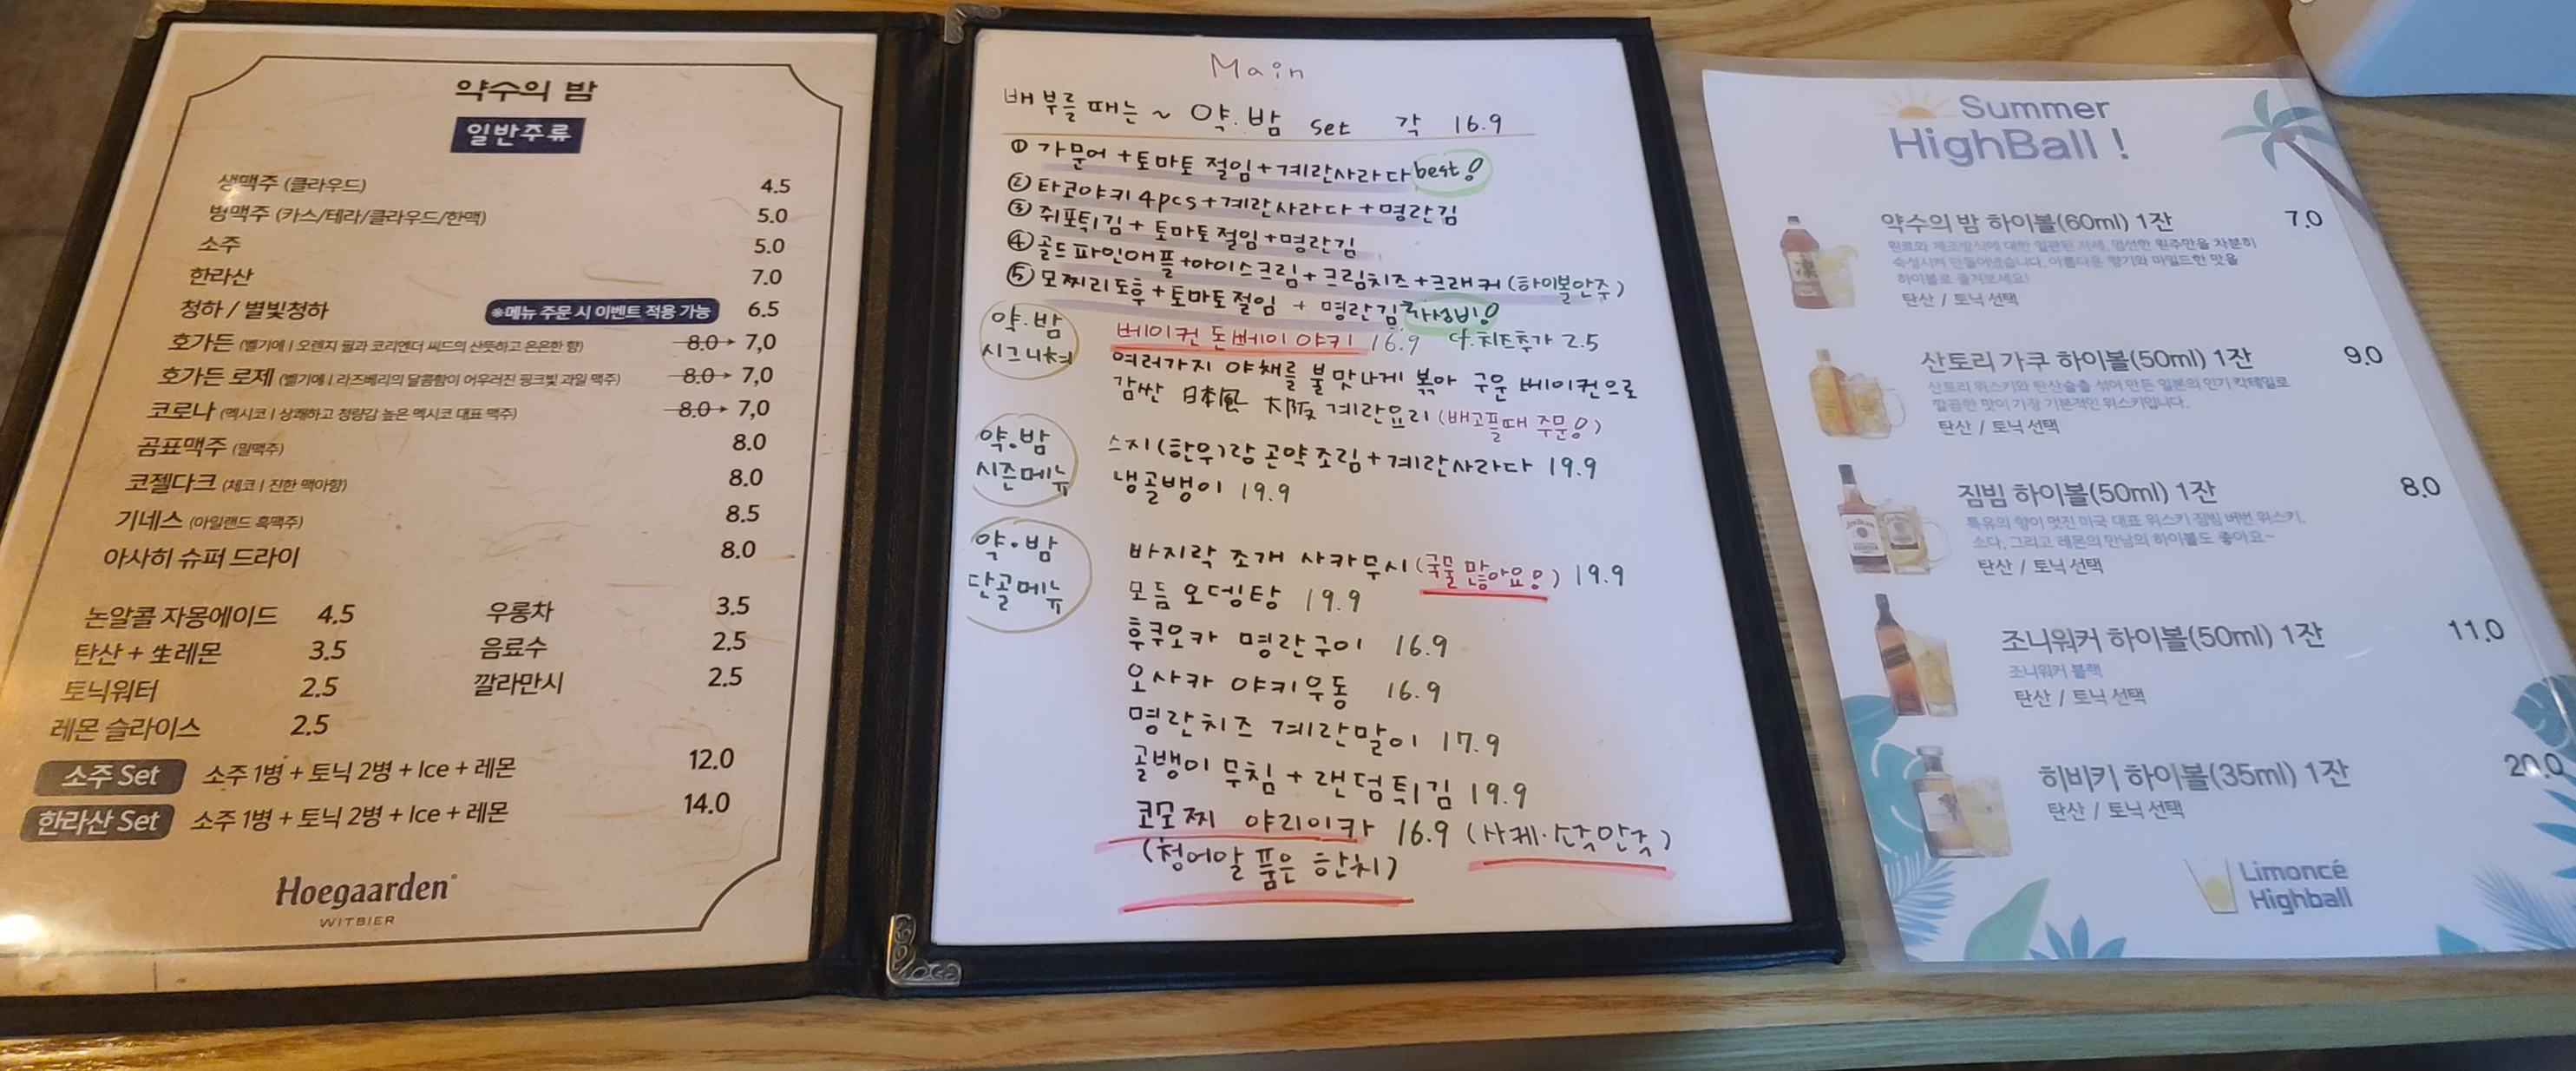 약수의 밤
일반주류
생맥주 (클라우드) 4.5
병맥주 (카스/테라/클라우드/한맥) 5.0
소주 5.0
한라산 7.0
청하 / 별빛청하 ※메뉴 주문 시 이벤트 적용 가능 6.5
호가든 (벨기에 | 오렌지 필과 코리엔더 씨드의 산뜻하고 은은한 향) 8.0 → 7,0
호가든 로제 (벨기에 | 라즈베리의 달콤함이 어우러진 핑크빛 과일 맥주) 8.0 → 7,0
코로나 (멕시코 | 상쾌하고 청량감 높은 멕시코 대표 맥주) 8.0 → 7,0
곰표맥주 (밀맥주) 8.0
코젤다크 (체코 | 진한 맥아향) 8.0
기네스 (아일랜드 흑맥주) 8.5
아사히 슈퍼 드라이 8.0
논알콜 자몽에이드 4.5 우롱차 3.5
탄산 + 生레몬 3.5 음료수 2.5
토닉워터 2.5 깔라만시 2.5
레몬 슬라이스 2.5
소주 Set 소주 1병 + 토닉 2병 + Ice + 레몬 12.0
한라산 Set 소주 1병 + 토닉 2병 + Ice + 레몬 14.0
Hoegaarden
WITBIER
Main
배부를 때는 ~ 약.밤 set 각 16.9
① 가문어 + 토마토 절임 + 계란사라다 best!
② 타코야키 4pcs + 계란사라다 + 명란김
③ 쥐포튀김 + 토마토절임 + 명란김
④ 골드파인애플 + 아이스크림 + 크림치즈 + 크래커 (하이볼안주)
⑤ 모찌리도후 + 토마토절임 + 명란김 가성비!
약.밤
시그니쳐
베이컨 돈베이야키 16.9 cf. 치즈추가 2.5
여러가지 야채를 불맛나게 볶아 구운 베이컨으로
감싼 日本風 大阪 계란요리 (배고플때 주문!)
약.밤
시즌메뉴
스지(한우)랑 곤약조림 + 계란사라다 19.9
냉골뱅이 19.9
약.밤
단골메뉴
바지락 조개 사카무시 (국물 많아요!) 19.9
모듬 오뎅탕 19.9
후쿠오카 명란구이 16.9
오사카 야키우동 16.9
명란치즈 계란말이 17.9
골뱅이 무침 + 랜덤튀김 19.9
코모찌 야리이카 16.9 (사케·소주안주)
(청어알 품은 한치)
Summer
HighBall !
약수의 밤 하이볼(60ml) 1잔 7.0
원료와 제조방식에 대한 일관된 자세, 엄선한 원주만을 차분히
숙성시켜 만들어냈습니다. 아름다운 향기와 마일드한 맛을
하이볼로 즐겨보세요!
탄산 / 토닉 선택
산토리 가쿠 하이볼(50ml) 1잔 9.0
산토리 위스키와 탄산수를 섞어 만든 일본의 인기 칵테일로
깔끔한 맛이 가장 기본적인 위스키입니다.
탄산 / 토닉 선택
짐빔 하이볼(50ml) 1잔 8.0
특유의 향이 멋진 미국 대표 위스키 짐빔 버번 위스키,
소다, 그리고 레몬의 만남의 하이볼도 좋아요~
탄산 / 토닉 선택
조니워커 하이볼(50ml) 1잔 11.0
조니워커 블랙
탄산 / 토닉 선택
히비키 하이볼(35ml) 1잔 20.0
탄산 / 토닉 선택
Limoncé
Highball